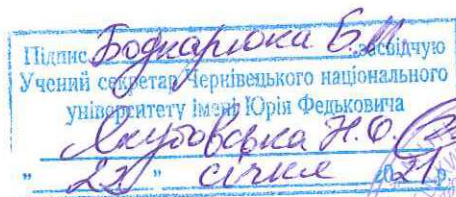 Підпис Боднарюка Б.М. засвідчую
Учений секретар Чернівецького національного
університету імені Юрія Федьковича
Якубовська Н.О.
" 22 " січня 2021 р.